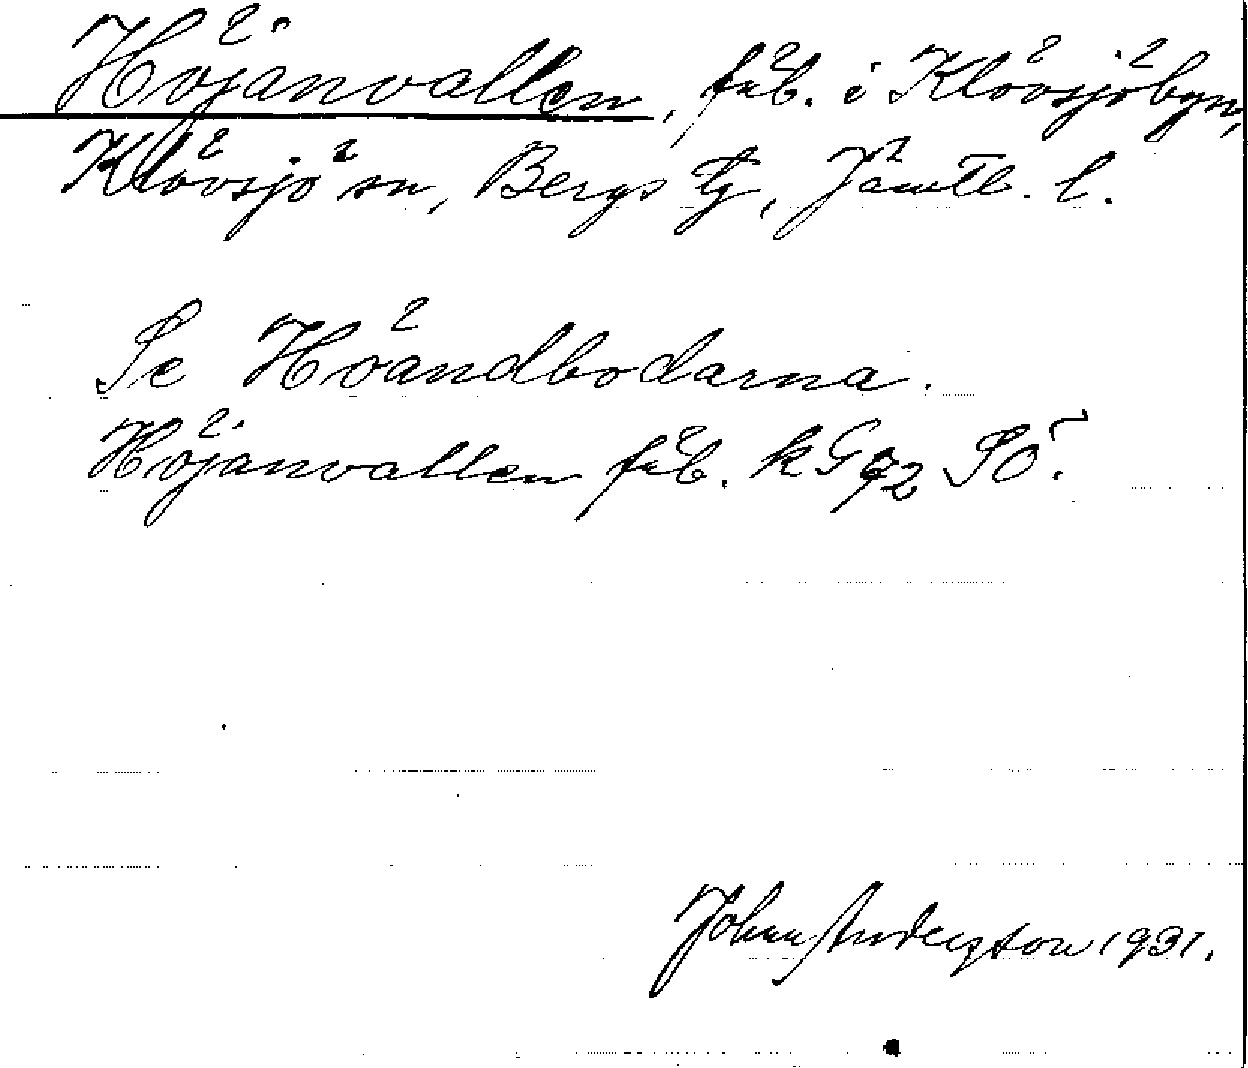 Höjanvallen, fäb. i Klövsjöbyn,
Klövsjö sn, Bergs tg, Jämtl. l.
Se Höandbodarna.
Höjanvallen fäb. kG 92 SÖ.
Johan Andersson 1931.